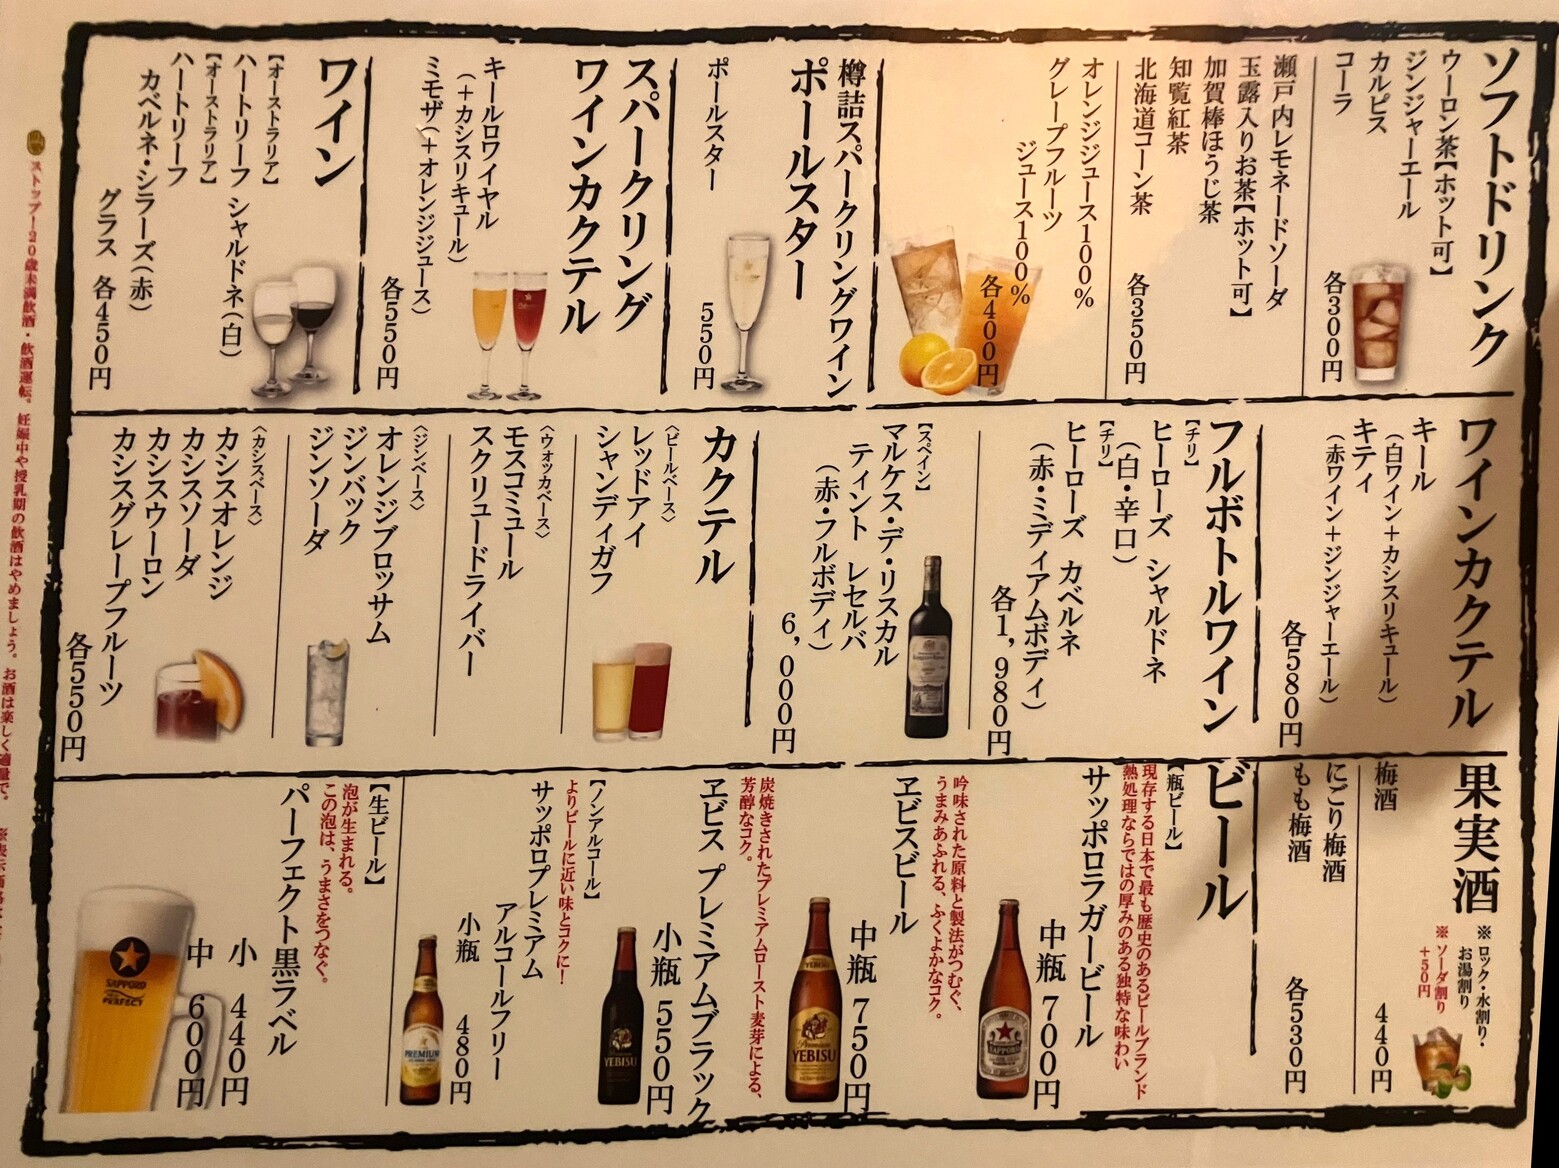 ソフトドリンク
ウーロン茶【ホット可】
ジンジャーエール
カルピス
コーラ
各300円
瀬戸内レモネードソーダ
玉露入りお茶【ホット可】
加賀棒ほうじ茶
知覧紅茶
北海道コーン茶
各350円
オレンジジュース100%
グレープフルーツ
ジュース100%
各400円
樽詰スパークリングワイン
ポールスター
ポールスター
550円
スパークリング
ワインカクテル
キールロワイヤル
（＋カシスリキュール）
ミモザ（＋オレンジジュース）
各550円
ワイン
【オーストラリア】
ハートリーフ シャルドネ（白）
【オーストラリア】
ハートリーフ
カベルネ・シラーズ（赤）
グラス 各450円
ワインカクテル
キール
（白ワイン＋カシスリキュール）
キティ
（赤ワイン＋ジンジャーエール）
各580円
フルボトルワイン
【チリ】
ヒーローズ シャルドネ
（白・辛口）
【チリ】
ヒーローズ カベルネ
（赤・ミディアムボディ）
各1,980円
【スペイン】
マルケス・デ・リスカル
ティント レセルバ
（赤・フルボディ）
6,000円
カクテル
〈ビールベース〉
レッドアイ
シャンディガフ
〈ウォッカベース〉
モスコミュール
スクリュードライバー
〈ジンベース〉
オレンジブロッサム
ジンバック
ジンソーダ
〈カシスベース〉
カシスオレンジ
カシスソーダ
カシスウーロン
カシスグレープフルーツ
各550円
果実酒
※ロック・水割り・
お湯割り
※ソーダ割り
＋50円
梅酒
440円
にごり梅酒
もも梅酒
各530円
ビール
【瓶ビール】
現存する日本で最も歴史のあるビールブランド
熱処理ならではの厚みのある独特な味わい
サッポロラガービール
中瓶 700円
SAPPORO
吟味された原料と製法がつむぐ、
うまみあふれる、ふくよかなコク。
ヱビスビール
中瓶 750円
YEBISU
Premium
YEBISU
炭焼きされたプレミアムロースト麦芽による、
芳醇なコク。
ヱビス プレミアムブラック
小瓶 550円
YEBISU
【ノンアルコール】
よりビールに近い味とコクに！
サッポロプレミアム
アルコールフリー
小瓶 480円
PREMIUM
【生ビール】
泡が生まれる。
この泡は、うまさをつなぐ。
パーフェクト黒ラベル
小 440円
中 600円
SAPPORO
PERFECT
ストップ！20歳未満飲酒・飲酒運転。妊娠中や授乳期の飲酒はやめましょう。お酒は楽しく適量で。